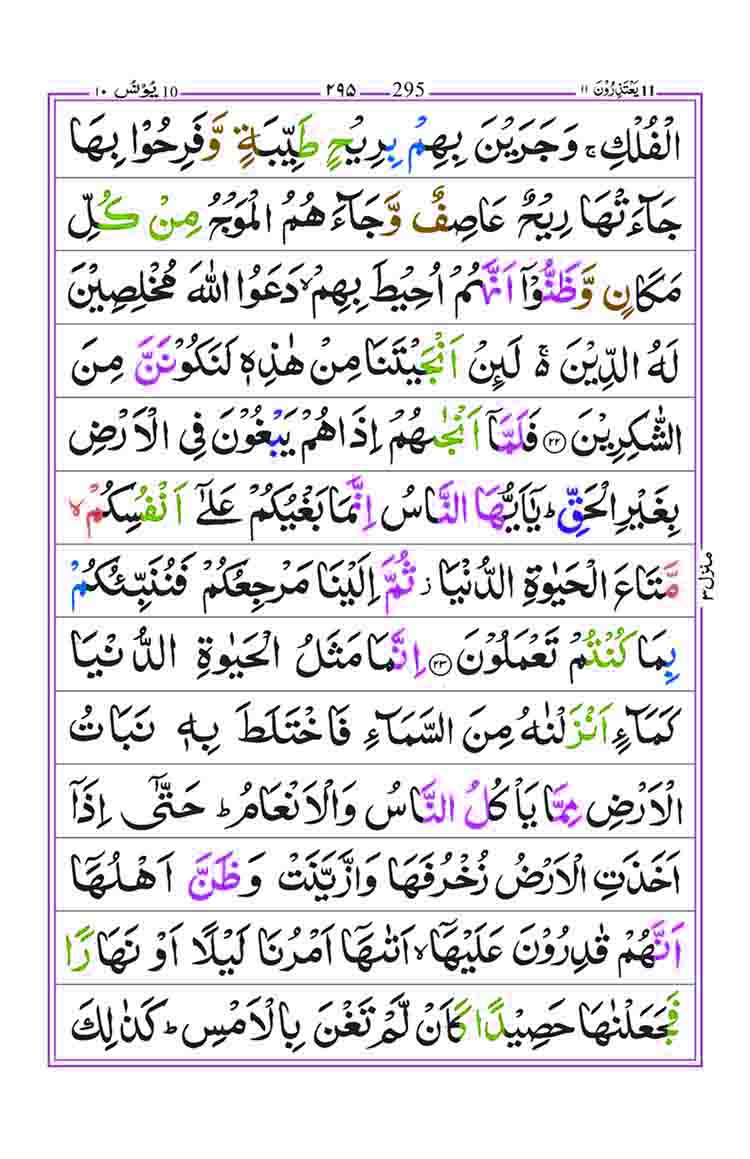 یَعْتَذِرُوْنَ ۱۱ 11 295 ۲۹۵ یُوْنُس ۱۰ 10
الْفُلْكِ ۚ وَجَرَیْنَ بِهِمْ بِرِیْحٍ طَیِّبَةٍ وَّفَرِحُوْا بِهَا
جَآءَتْهَا رِیْحٌ عَاصِفٌ وَّجَآءَهُمُ الْمَوْجُ مِنْ كُلِّ
مَكَانٍ وَّظَنُّوْۤا اَنَّهُمْ اُحِیْطَ بِهِمْ ۙ دَعَوُا اللّٰهَ مُخْلِصِیْنَ
لَهُ الدِّیْنَ ۚ۬ لَئِنْ اَنْجَیْتَنَا مِنْ هٰذِهٖ لَنَكُوْنَنَّ مِنَ
الشّٰكِرِیْنَ ۝۲۲ فَلَمَّاۤ اَنْجٰىهُمْ اِذَا هُمْ یَبْغُوْنَ فِی الْاَرْضِ
بِغَیْرِ الْحَقِّ ؕ یٰۤاَیُّهَا النَّاسُ اِنَّمَا بَغْیُكُمْ عَلٰۤى اَنْفُسِكُمْ ۙ
مَّتَاعَ الْحَیٰوةِ الدُّنْیَا ؗ ثُمَّ اِلَیْنَا مَرْجِعُكُمْ فَنُنَبِّئُكُمْ
بِمَا كُنْتُمْ تَعْمَلُوْنَ ۝۲۳ اِنَّمَا مَثَلُ الْحَیٰوةِ الدُّنْیَا
كَمَآءٍ اَنْزَلْنٰهُ مِنَ السَّمَآءِ فَاخْتَلَطَ بِهٖ نَبَاتُ
الْاَرْضِ مِمَّا یَاْكُلُ النَّاسُ وَالْاَنْعَامُ ؕ حَتّٰۤى اِذَاۤ
اَخَذَتِ الْاَرْضُ زُخْرُفَهَا وَازَّیَّنَتْ وَظَنَّ اَهْلُهَاۤ
اَنَّهُمْ قٰدِرُوْنَ عَلَیْهَاۤ ۙ اَتٰىهَاۤ اَمْرُنَا لَیْلًا اَوْ نَهَارًا
فَجَعَلْنٰهَا حَصِیْدًا كَاَنْ لَّمْ تَغْنَ بِالْاَمْسِ ؕ كَذٰلِكَ
منزل ۳